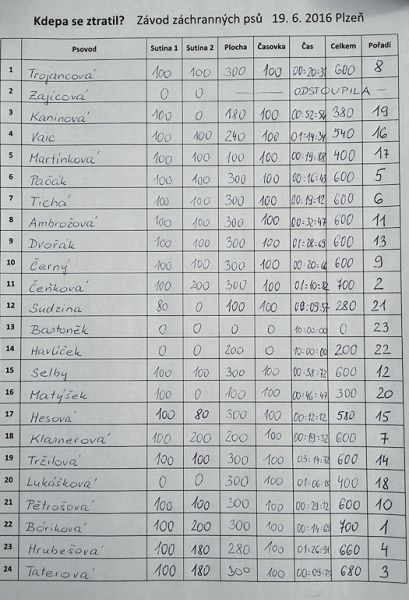 Kdepa se ztratil? Závod záchranných psů 19. 6. 2016 Plzeň
Psovod Sutina 1 Sutina 2 Plocha Časovka Čas Celkem Pořadí
1 Trojancová 100 100 300 100 600 8
2 Zajícová 0 0 — — ODSTOUPILA —
3 Kaninová 100 0 180 100 00:52:54 380 19
4 Vaic 100 100 240 100 01:14:34 540 16
5 Martínková 100 100 100 100 400 17
6 Pačák 100 100 300 100 600 5
7 Tichá 100 100 300 100 00:19:12 600 6
8 Ambrožová 100 100 300 100 00:32:47 600 11
9 Dvořák 100 100 300 100 600 13
10 Černý 100 100 300 100 600 9
11 Čeňková 100 200 300 100 700 2
12 Sudzina 80 0 100 100 280 21
13 Bartoněk 0 0 0 0 10:00:00 0 23
14 Havlíček 0 0 200 0 10:00:00 200 22
15 Selby 100 100 300 100 600 12
16 Matýšek 100 0 100 100 00:46:47 300 20
17 Hesová 100 80 300 100 00:12:12 580 15
18 Klasnerová 100 200 200 100 600 7
19 Tržilová 100 100 300 100 600 14
20 Lukášková 0 0 300 100 400 18
21 Pětrošová 100 100 300 100 600 10
22 Bóriková 100 200 300 100 700 1
23 Hrubešová 100 180 280 100 660 4
24 Taterová 100 180 300 100 680 3